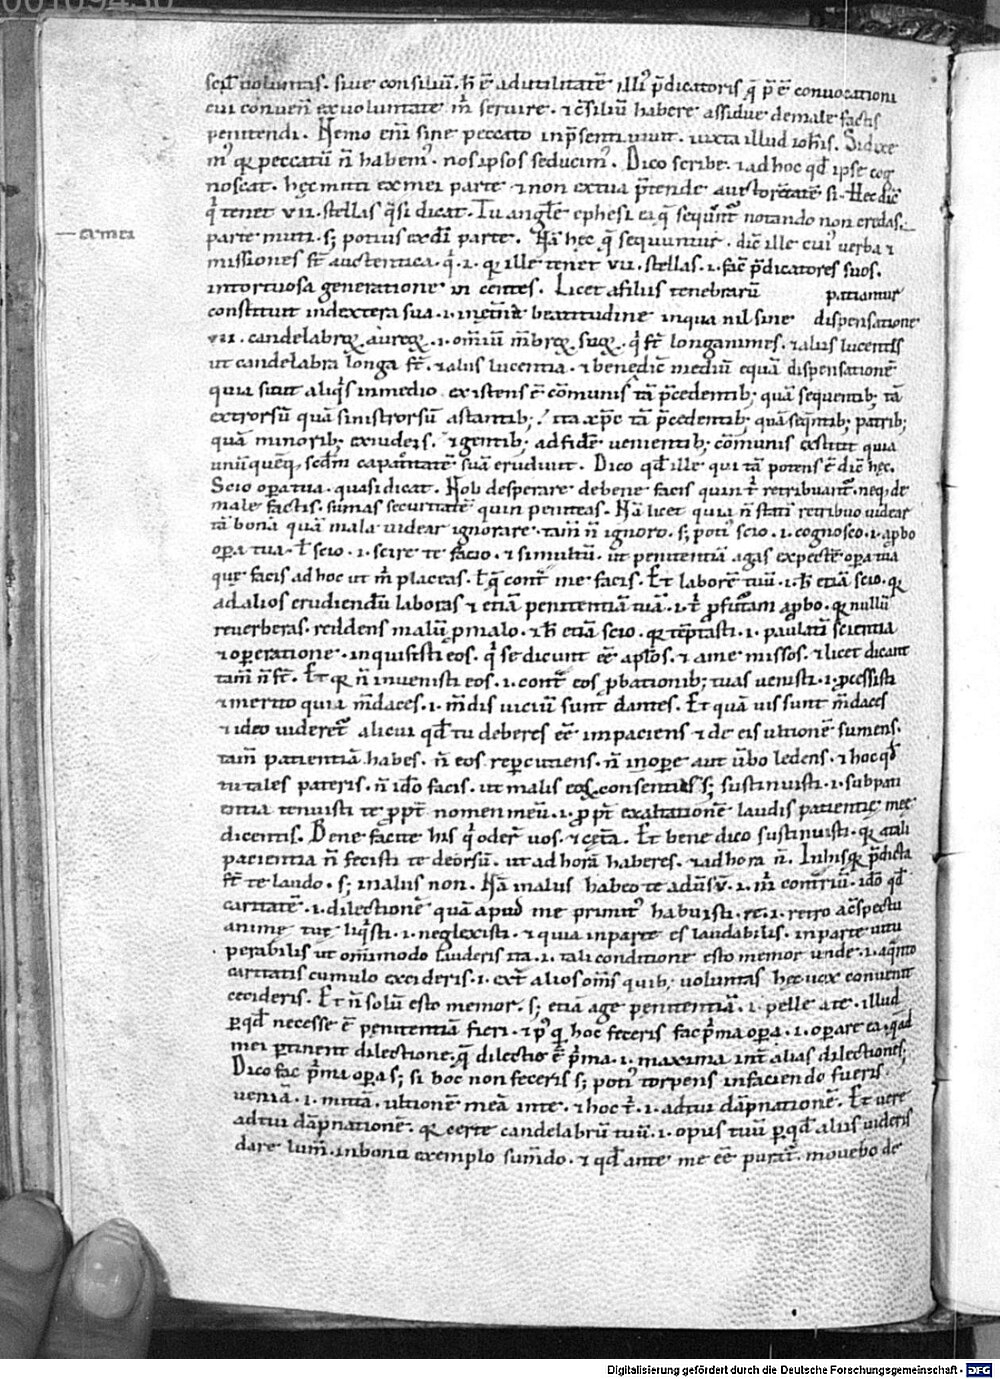 00109430
scił voluntas. sive consiliū. ħ ē ad utilitatē illi᷒ p̄dicatoris q̄ p̄ ē convocationi
cui conveñ ex voluntate m̄ servire. ⁊ c̄siliū habere assidue de male factis
penitendi. Nemo eni sine peccato in p̄senti vivit. iuxta illud ioh̄is. Si dixe
m᷒ qꝛ peccatū n̄ habem᷒. nos ipsos seducim᷒. Dico scribe. ⁊ ad hoc qđ ipse cog
noscat. hęc mitti ex mei parte ⁊ non ex tua p̄tende auctoritate si. Hec dic̄
q̄ tenet vii. stellas q̄si dicat. Tu angłe ephesi ea q̄ sequnt̄ notando non credas
— ea mei
parte mitti. s; potius ex dī parte. Nā hęc q̄ sequuntur. dic̄ ille cui᷒ verba ⁊
missiones st̄ auctentica. q̄. i. qꝛ ille tenet vii. stellas. i. fac̄ p̄dicatores suos.
in tortuosa generatione vi centes. Licet a filiis tenebrarū patiantur
constituit in dextera sua. i. in et̄na beatitudine in qua nil sine dispensatione
vii. candelabroꝛ aureoꝛ. i. om̄iū m̄broꝛ suoꝛ. q̄ st̄ longanimes. ⁊ aliis lucentes
ut candelabra longa st̄. ⁊ aliis lucentia. ⁊ bene dic̄ mediū equā dispensationē
quia sicut aliq̄s in medio existens ē cōmunis tā p̄cedentib; quā sequentib; tā
extrorsū quā sinistrorsū astantib; ita xp̄c tā p̄cedentib; quā seq̄ntib; patrib;
quā minorib; ex iudeis. ⁊ gentib; ad fidē venientib; cōmunis exstitit quia
unūquēq; scđm capacitatē suā erudivit. Dico qđ ille qui tā potens ē dic̄ hęc.
Scio opera tua. quasi dicat. N ob desperare de bene factis quin t̄ retribuant̄. neq; de
male factis. sumas securitatē quin peniteas. Nā licet quia n̄ statī retribuo videar
tā bona quā mala videar ignorare. tam̄ n̄ ignoro. s; poti᷒ scio. i. cognosco. i. aprobo
opera tua. ł scio. i. scire te facio. ⁊ simul tū. ut penitentiā agas expectē opera tua
quę facis ad hoc ut m̄ placeas. ł q̄ cont̄ me facis. Et laborē tuū. i. ħ etiā scio. qꝛ
ad alios erudiendū laboras ⁊ etiā penitentiā tuā. i. t̄ p̄futuram aprobo. qꝛ nullū
reverberas. reddens malū p malo. ⁊ ħ etiā scio. qꝛ tēptasti. i. paulatī scientia
⁊ operatione. inquisisti eos. q̄ se dicunt eē aplōs. ⁊ a me missos. ⁊ licet dicant
tam̄ n̄ st̄. Et qꝛ n̄ invenisti eos. i. cont̄ eos p̄bationib; tuas venisti. i. p̄cessisti
⁊ merito quia m̄daces. i. m̄dis viciū sunt dantes. Et quā vis sunt m̄daces
⁊ ideo videret̄ alicui qđ tu deberes eē impaciens ⁊ de eis ultionē sumens.
tam̄ patientiā habes. n̄ eos repercutiens. n̄ in opere aut v̄bo ledens. ⁊ hoc qđ
tu tales pateris. n̄ ido facis. ut malis eoꝛ consentias s; sustinuisti. i. sub pati
entia tenuisti te p̄pt̄ nomen meū. i. p̄pt̄ exaltationē laudis patientię męe
dicentis. Bene facite his q̄ oder̄ vos. ⁊ ceta. Et bene dico sustinuisti. qꝛ a tali
pacientia n̄ fecisti te deorsū. ut ad horā haberes. ⁊ ad hora n̄. In hisq; p̄dicta
st̄ te laudo. s; in aliis non. Nā in aliis habeo te adūsū. i. m̄ cont̄riū. ido qđ
caritatē. i. dilectionē quā apud me primit᷒ habuisti. re. i. retro a c̄spectu
animę tuę liq̄sti. i. neglexisti. ⁊ quia in parte es laudabilis. in parte vitu
perabilis ut om̄imodo lauderis ita. i. tali conditione esto memor unde. i. a q̄nto
caritatis cumulo excideris. i. ext̄ alios om̄s quib; voluntas hęc vox convenit
cecideris. Et n̄ solū esto memor. s; etiā age penitentiā. i. pelle a te. illud
p qđ necesse ē penitentiā fieri. ⁊ p᷒ q̄ hoc feceris fac p̄ma opera. i. operare ea. q̄ ad
mei pertinent dilectionē. q̄ dilectio ē p̄ma. i. maxima int̄ alias dilectiones;
Dico fac p̄mi operas; si hoc non feceris s; poti᷒ torpens in faciendo fueris.
veniā. i. mittā. ultionē meā in te. ⁊ hoc t̄. i. ad tui dāpnationē. Et vere
ad tui dāpnationē. qꝛ certe candelabrū tuū. i. opus tuū p qđ aliis videris
dare lum̄. in bona exemplo sum̄do. ⁊ qđ ante me eē putat̄. movebo de
Digitalisierung gefördert durch die Deutsche Forschungsgemeinschaft - DFG